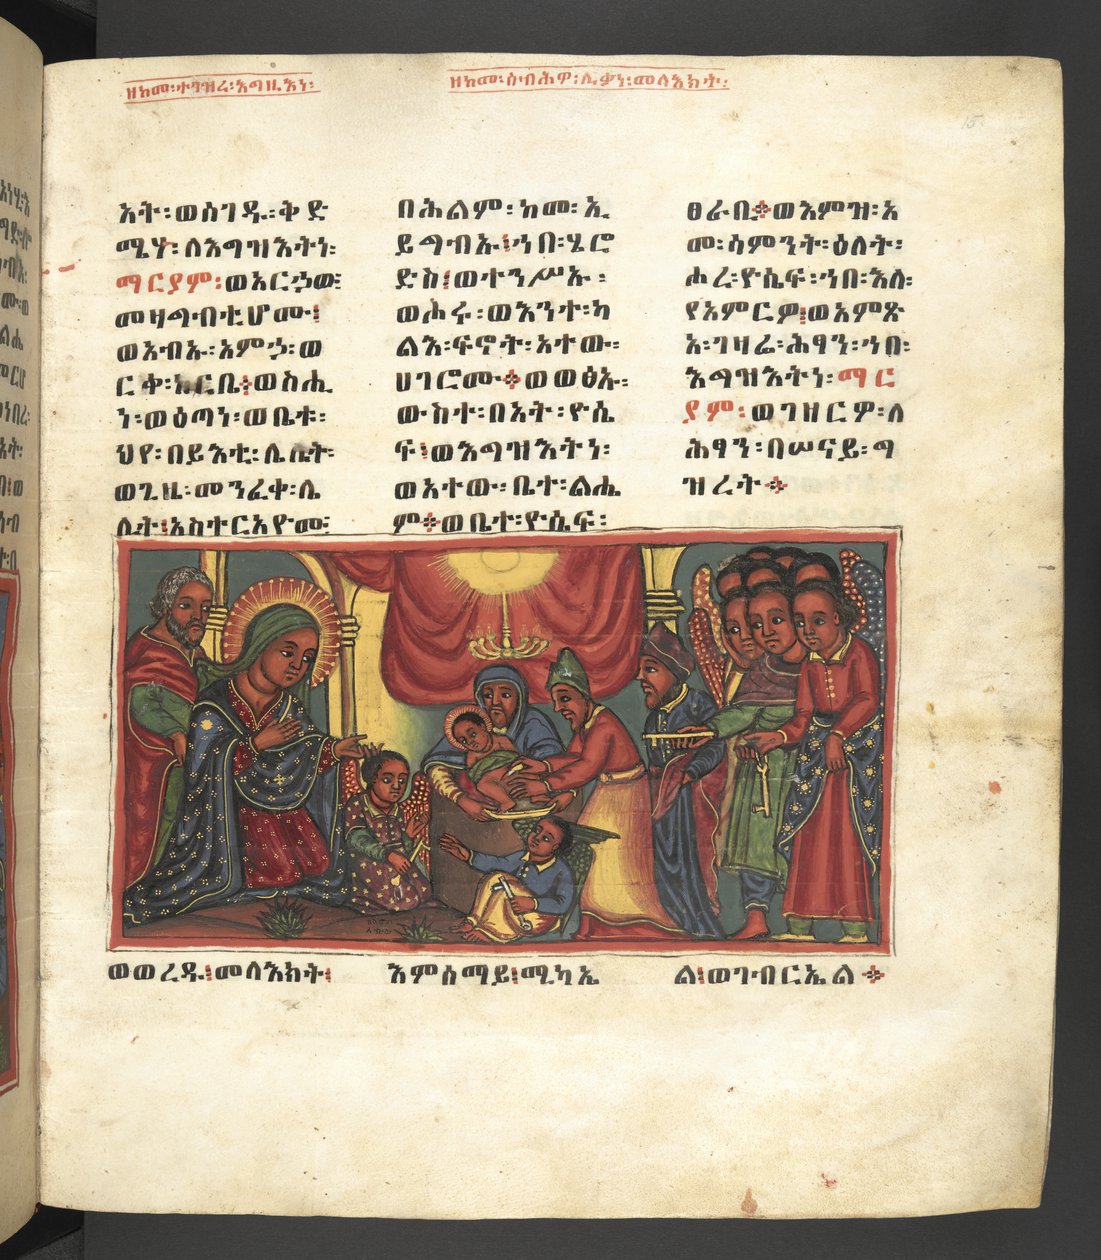 ዘከመ፡ተገዝረ፡እግዚእነ፡
ዘከመ፡ሰብሕዎ፡ሊቃነ፡መላእክት፡
15
እት፡ወሰገዱ፡ቅድ
ሜሃ፡ለእግዝእትነ፡
ማርያም፡ወአርኃው፡
መዛግብቲሆሙ፡
ወአብኡ፡አምኃ፡ወ
ርቀ፡ከርቤ፡ወስሒ
ነ፡ወዕጣነ፡ወቤቱ፡
ህየ፡በይእቲ፡ሌሊት፡
ወጊዜ፡መንፈቀ፡ሌ
ሊት፡አስተርአዮሙ፡
በሕልም፡ከመ፡ኢ
ይግብኡ፡ኀበ፡ሄሮ
ድስ፡ወተንሥኡ፡
ወሖሩ፡ወእንተ፡ካ
ልእ፡ፍኖት፡አተው፡
ሀገሮሙ፡ወወፅኡ፡
ውስተ፡በአት፡ዮሴ
ፍ፡ወእግዝእትነ፡
ወአተው፡ቤተ፡ልሔ
ም፡ወቤተ፡ዮሴፍ፡
ፀራቢ፡ወእምዝ፡አ
መ፡ሳምንት፡ዕለት፡
ሖረ፡ዮሴፍ፡ኀበ፡እለ፡
የአምርዎ፡ወአምጽ
አ፡ገዛሬ፡ሕፃን፡ኀበ፡
እግዝእትነ፡ማር
ያም፡ወገዘርዎ፡ለ
ሕፃን፡በሠናይ፡ግ
ዝረት፡
ወወረዱ፡መላእክት፡ እምሰማይ፡ሚካኤ ል፡ወገብርኤል፡